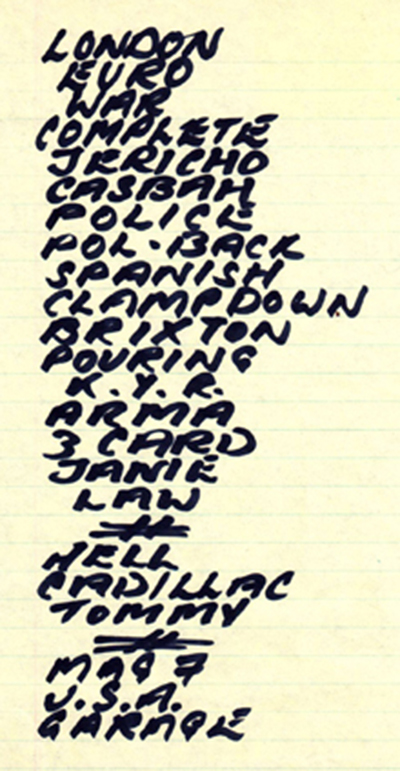 LONDON
EURO
WAR
COMPLETE
JERICHO
CASBAH
POLICE
POL-BACK
SPANISH
CLAMPDOWN
BRIXTON
POURING
K.Y.R.
ARMA
3 CARD
JANIE
LAW
HELL
CADILLAC
TOMMY
MAG 7
U.S.A.
GARAGE